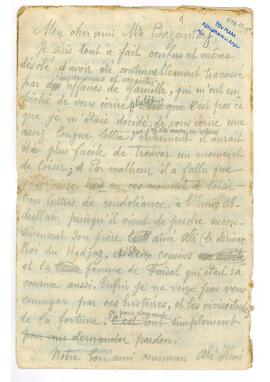 1
Mon cher ami Mr
Je suis tout à fait confus et même
désolé d'avoir été continuellement tracassé
imprévues et inquiètes
par des affaires de famille, qui m'ont em-
pêché de vous écrire plutôt que c'est pas ce
que je m'étais décidé de vous écrire une
assez longue lettre, autrement il aurait
été plus facile de trouver un moment
de loisir, et Par malheur il a fallu que
en ces moments de loisir
des lettres de condoléance à l'émir Ab-
dullah, puisqu'il vient de perdre succes-
sivement son frère aîné Ali (le dernier
Roi du Hedjaz, cousins
et la femme de Faisal qui était sa
cousine aussi. Enfin je ne veux pas vous
ennuyer par ces histoires, et les vicissitudes
je vous demande
de la fortune. C'est tout simplement
pour vous demander pardon.
Notre bon ami commun Ali